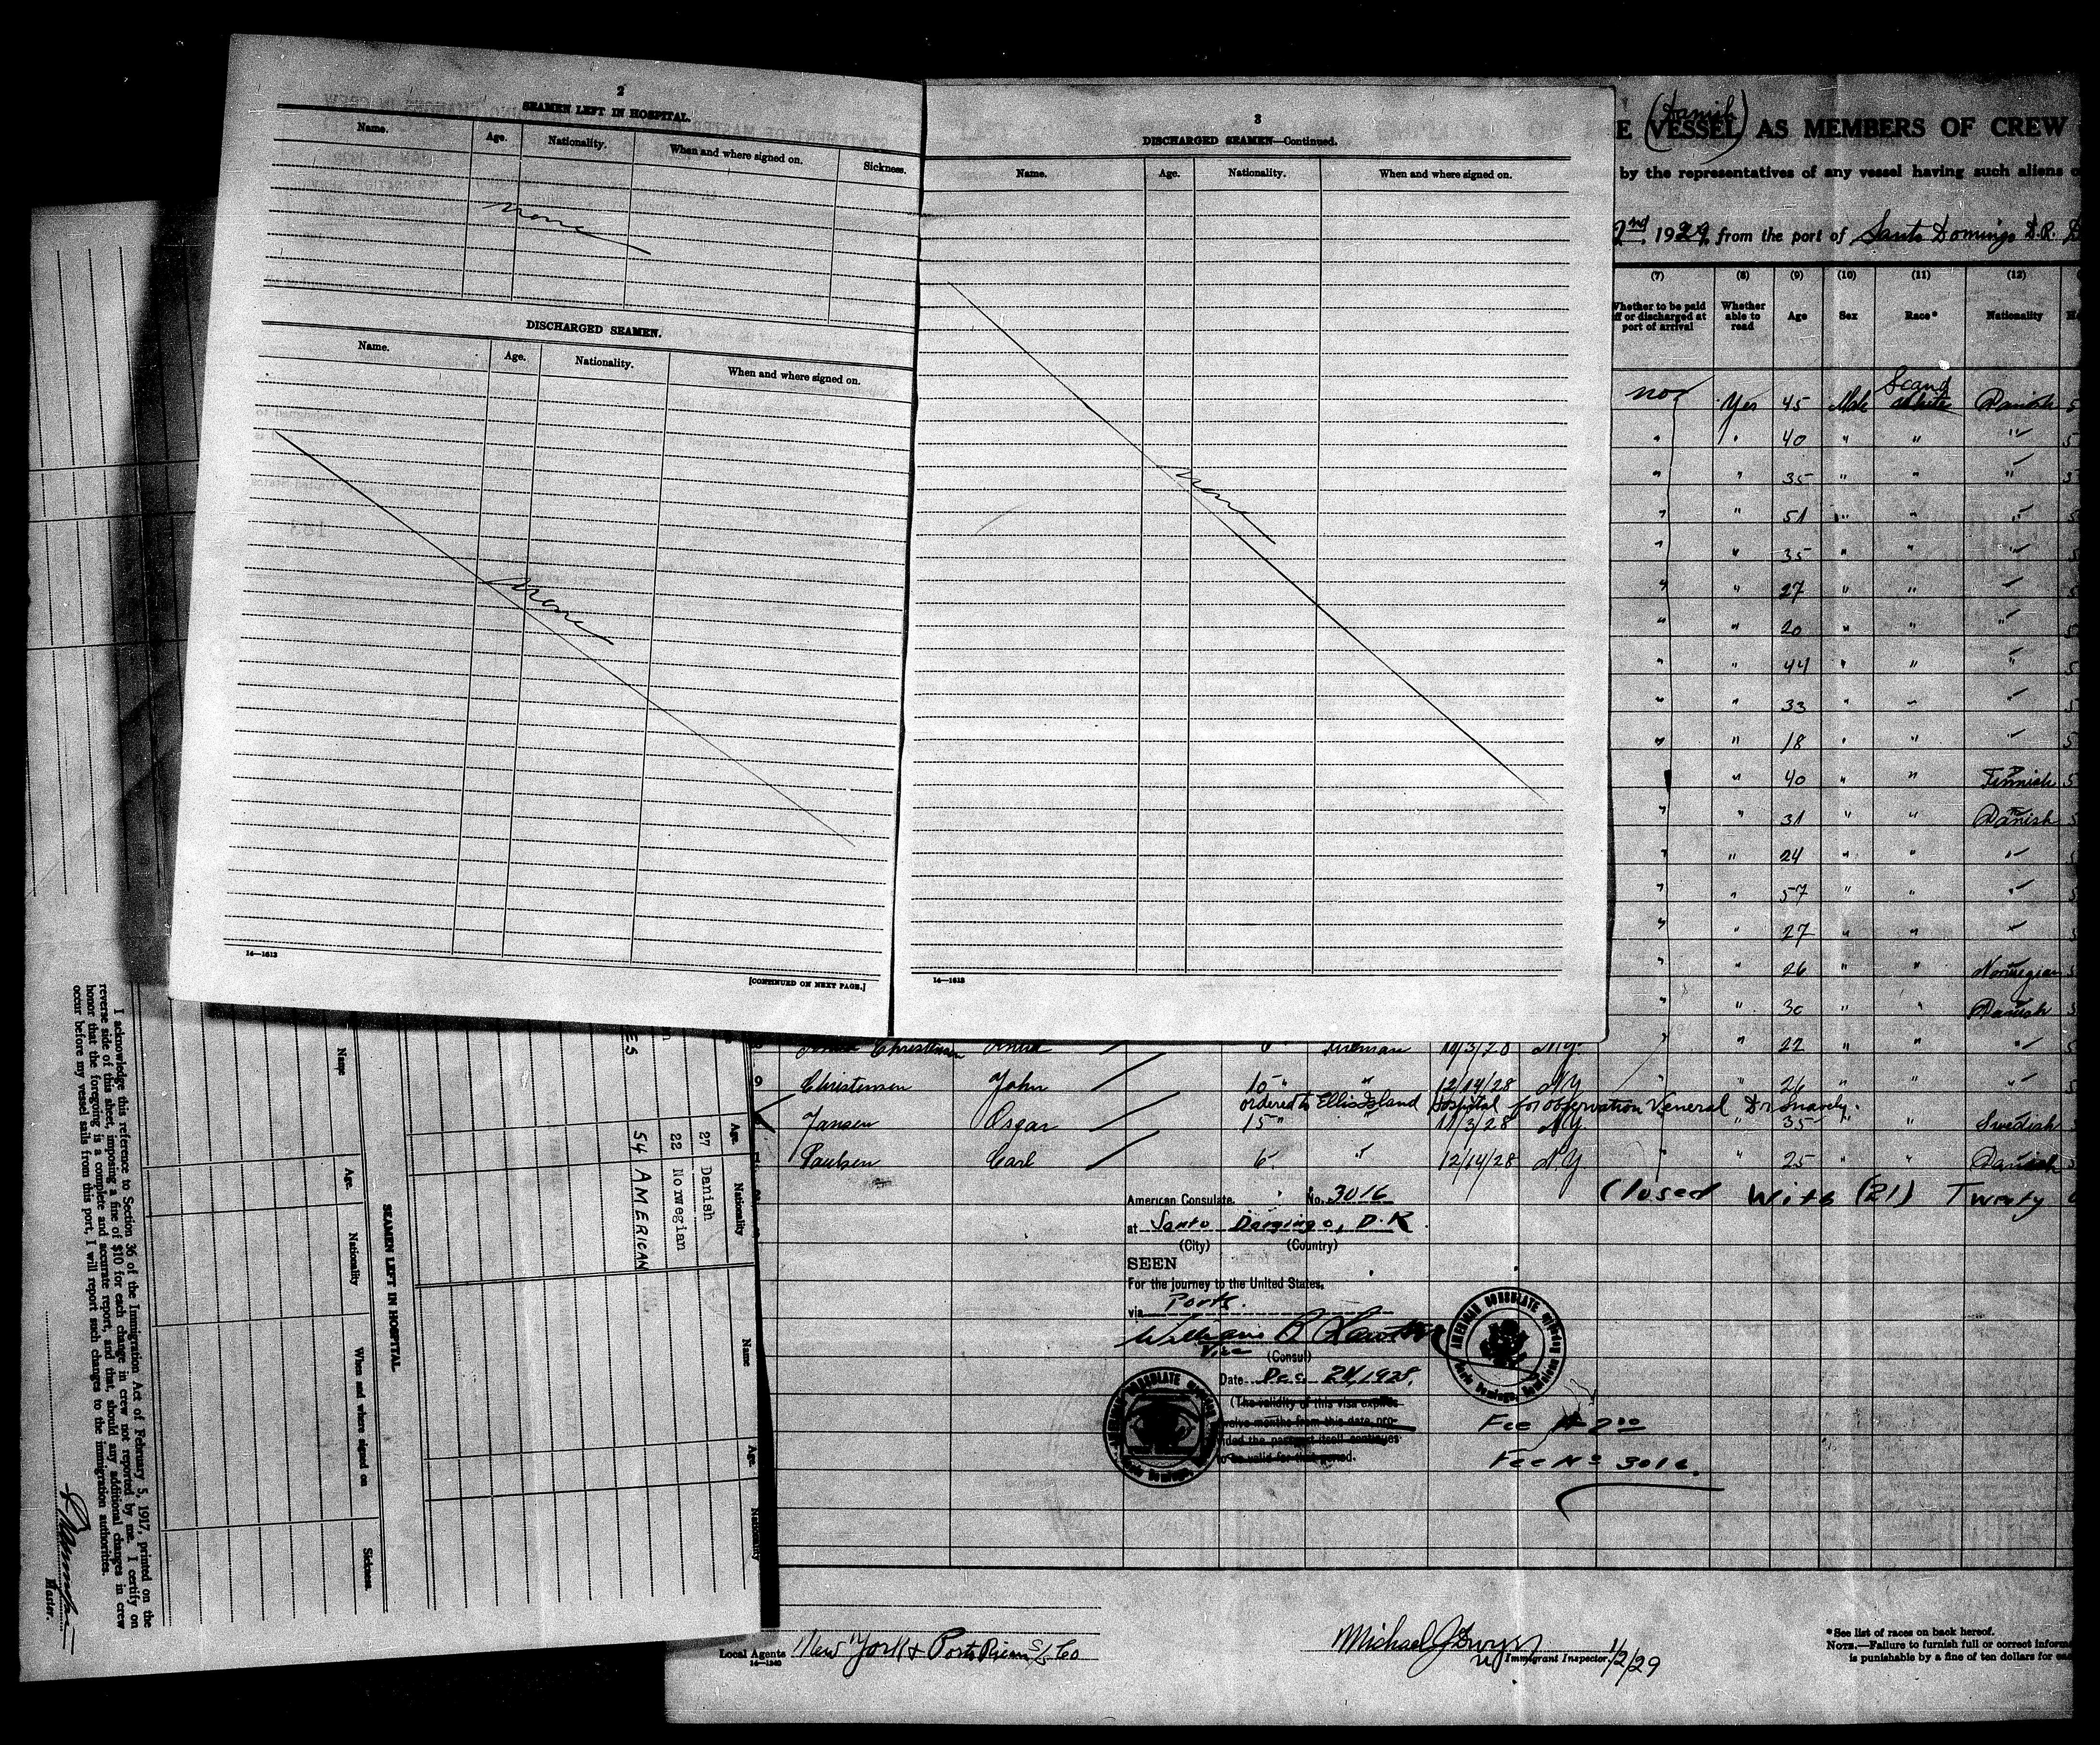 2
SEAMEN LEFT IN HOSPITAL.
Name. Age. Nationality. When and where signed on. Sickness.
none
DISCHARGED SEAMEN.
Name. Age. Nationality. When and where signed on.
none
16—1613
[CONTINUED ON NEXT PAGE.]
3
DISCHARGED SEAMEN—Continued.
Name. Age. Nationality. When and where signed on.
none
16—1613
(Danish)
E (VESSEL) AS MEMBERS OF CREW
by the representatives of any vessel having such aliens
2nd 1929 from the port of Santo Domingo D.R.
(7) (8) (9) (10) (11) (12)
Whether to be paid off or discharged at port of arrival
Whether able to read
Age
Sex
Race*
Nationality
no Yes 45 Male Scand white Danish 5
" " 40 " " "
" " 35 " " "
" " 51 " " "
" " 35 " " "
" " 27 " "
" " 20 " " "
" " 44 " " "
" " 33 " " "
" " 18 " " "
" 40 " " Finnish 5
" " 31 " " Danish
" " 24 " " "
" " 57 " " "
" " 27 " " "
" " 26 " " Norwegian
" " 30 " " Danish
Christensen Fireman N.Y. " " 22 " " "
9 Christensen John 10 " " 12/14/28 N.Y. " " 26 " " "
ordered to Ellis Island Hospital for observation Veneral Dr Snavely.
Jansen Oscar 15 " 11/3/28 N.Y. " 35 " Swedish
Paulsen Carl 6 " 12/14/28 N.Y. " " 25 " " Danish
Closed With (21) Twenty
American Consulate. No. 3016
at Santo Domingo, D.R.
(City) (Country)
SEEN
For the journey to the United States.
via Ports.
William
Vice (Consul)
Date Dec. 24, 1928.
(The validity of this visa expires
twelve months from this date, pro-
vided the passport itself continues
to be valid for that period.
AMERICAN CONSULATE
Santo Domingo, Dominican
AMERICAN CONSULATE
Santo Domingo,
Fee $2.00
Fee No 3016.
Local Agents New York & Porto Rico S/S Co
16—1240
Michael J Dwyer
Immigrant Inspector. 1/2/29
*See list of races on back hereof.
NOTE.—Failure to furnish full or correct
is punishable by a fine of ten dollars for
Age. Nationality
27 Danish
22 Norwegian
54 AMERICAN
Name Age. Nationality
SEAMEN LEFT IN HOSPITAL
Name Age. Nationality When and where signed on Sickness.
I acknowledge this reference to Section 36 of the Immigration Act of February 5, 1917, printed on the
reverse side of this sheet, imposing a fine of $10 for each change in crew not reported by me. I certify on
honor that the foregoing is a complete and accurate report, and that, should any additional changes in crew
occur before my vessel sails from this port, I will report such changes to the immigration authorities.
Master.